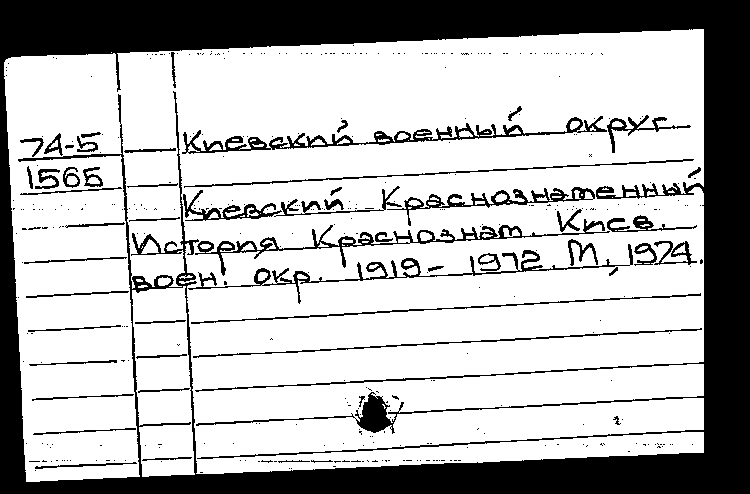 74-5
1565
Киевский военный округ.
Киевский Краснознаменный
История Краснознам. Киев.
воен. окр. 1919 – 1972. М., 1974.